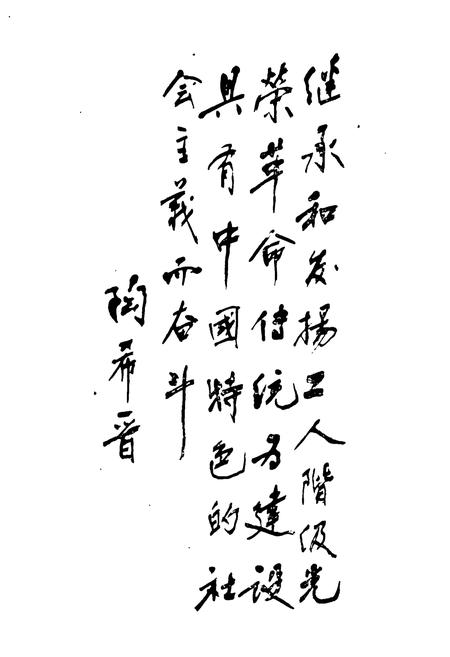 继承和发揚工人階级光
榮革命传统为建设
具有中國特色的社
会主義而奋斗
陶希晋